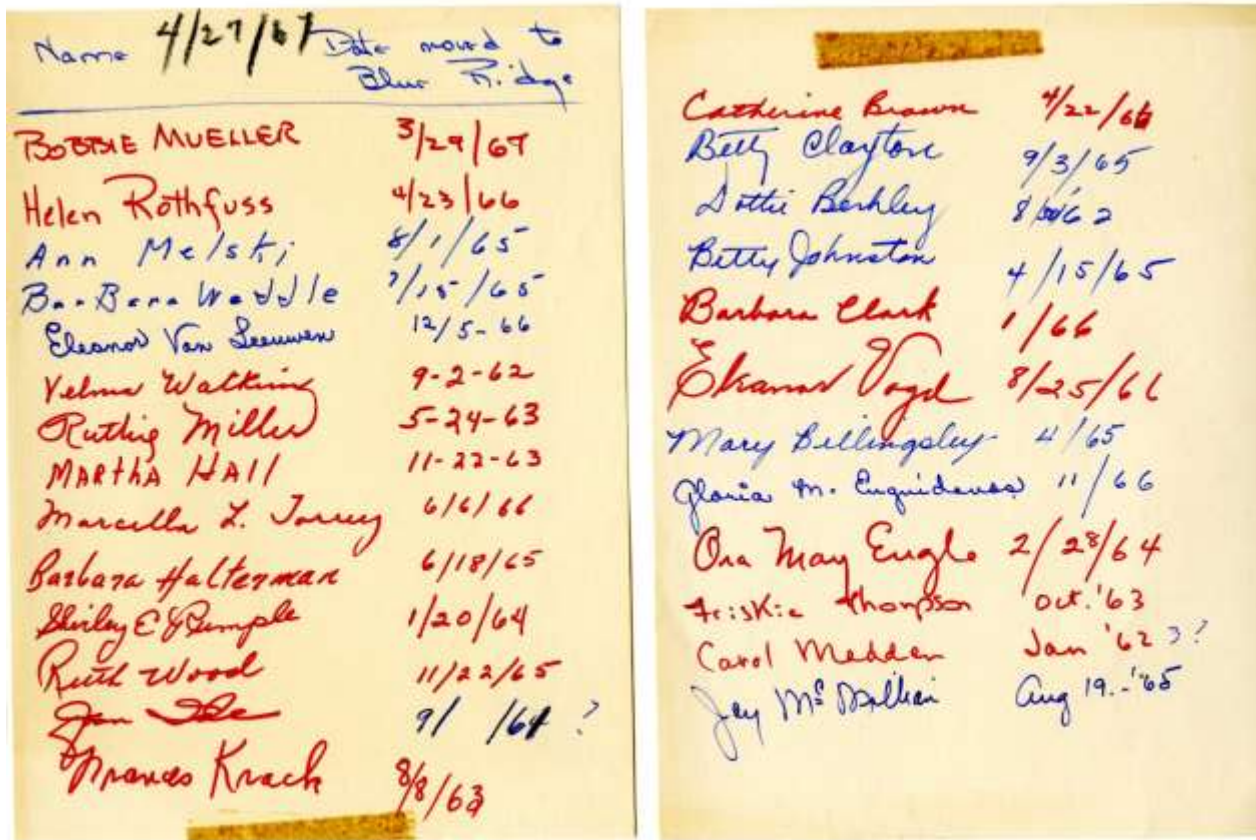 Name 4/27/67 Date moved to
Blue Ridge
BOBBIE MUELLER 3/29/67
Helen Rothfuss 4/23/66
Ann Melski 8/1/65
BarBara Weddle 7/15/65
Eleanor Van Leeuwen 12/5-66
Velma Watkins 9-2-62
Ruthie Miller 5-24-63
MARthA HAll 11-22-63
Marcella L. Torrey 6/6/66
Barbara Halterman 6/18/65
Shirley E Rumple 1/20/64
Ruth Wood 11/22/65
Jan 9/ /64 ?
Frances Krach 8/8/63
Catherine Brown 4/22/66
Betty Clayton 9/3/65
Dottie Berkley 8/ 62
Betty Johnston 4/15/65
Barbara Clark 1/66
Eleanor Vogel 8/25/66
Mary Billingsley 4/65
Gloria M. 11/66
Ora May Eugle 2/28/64
Friskie Thompson Oct. '63
Carol Madden Jan '62 ??
Jay Aug 19.-'65